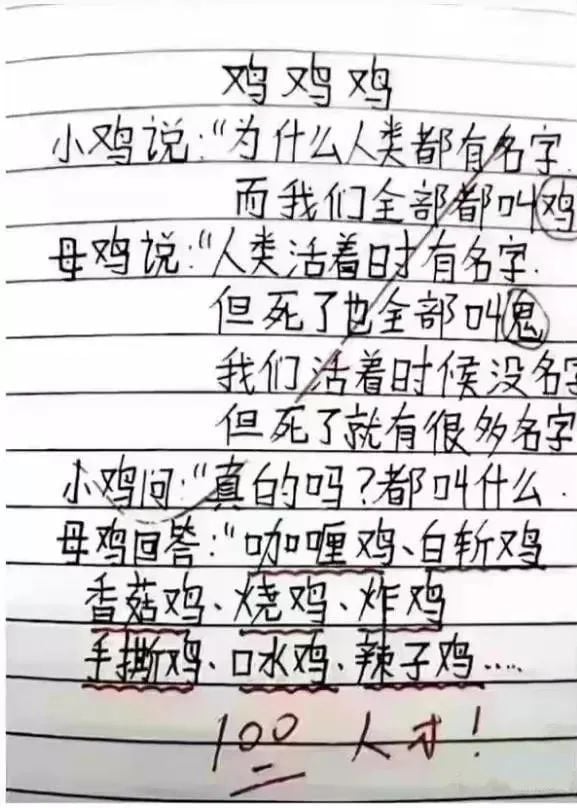 鸡鸡鸡
小鸡说:“为什么人类都有名字
而我们全部都叫鸡
母鸡说:“人类活着时有名字.
但死了也全部叫鬼
我们活着时候没名字
但死了就有很多名字
小鸡问:“真的吗?都叫什么.
母鸡回答:“咖喱鸡、白斩鸡
香菇鸡、烧鸡、炸鸡
手撕鸡、口水鸡、辣子鸡……
100 人才!